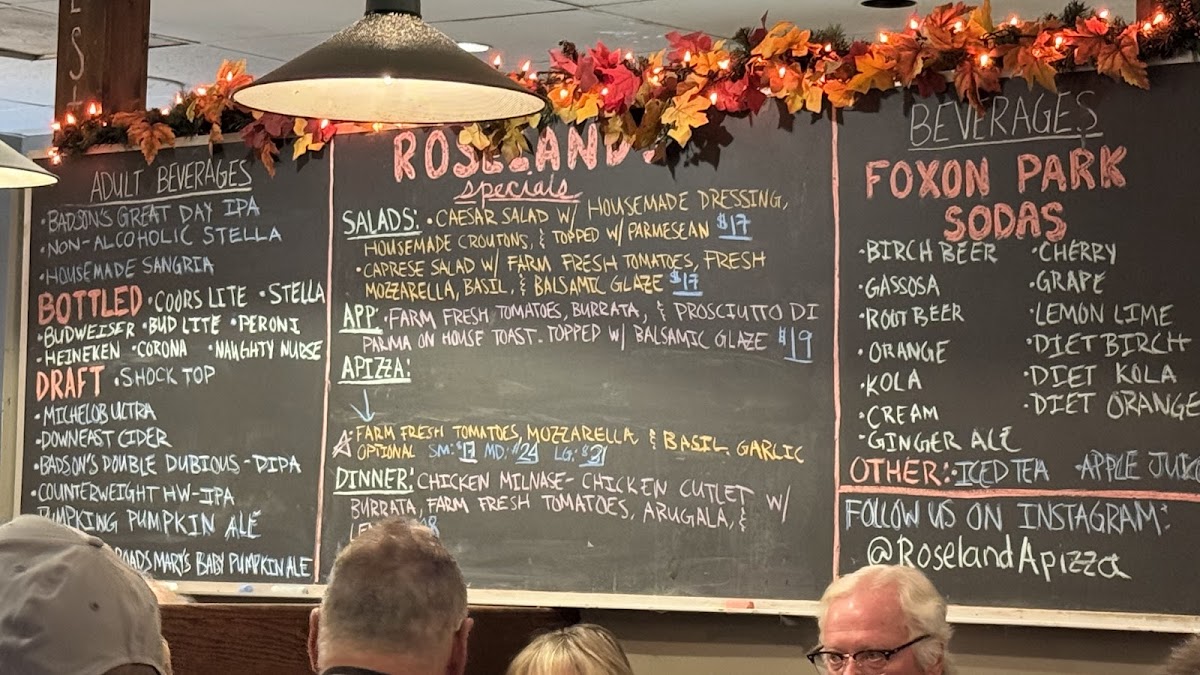 ADULT BEVERAGES
•BADSON'S GREAT DAY IPA
•NON-ALCOHOLIC STELLA
•HOUSEMADE SANGRIA
BOTTLED •COORS LITE •STELLA
•BUDWEISER •BUD LITE •PERONI
•HEINEKEN •CORONA •NAUGHTY NURSE
DRAFT •SHOCK TOP
•MICHELOB ULTRA
•DOWNEAST CIDER
•BADSON'S DOUBLE DUBIOUS-DIPA
•COUNTERWEIGHT HW-IPA
PUMPKING PUMPKIN ALE
ROADS MARY'S BABY PUMPKIN ALE
ROSELANDS
specials
SALADS: •CAESAR SALAD W/ HOUSEMADE DRESSING,
HOUSEMADE CROUTONS, & TOPPED W/ PARMESEAN $17
•CAPRESE SALAD W/ FARM FRESH TOMATOES, FRESH
MOZZARELLA, BASIL, & BALSAMIC GLAZE $17
APP: •FARM FRESH TOMATOES, BURRATA, & PROSCIUTTO DI
PARMA ON HOUSE TOAST. TOPPED W/ BALSAMIC GLAZE $19
APIZZA:
FARM FRESH TOMATOES, MOZZARELLA & BASIL. GARLIC
OPTIONAL SM: $17 MD: $24 LG: $31
DINNER: CHICKEN MILNASE- CHICKEN CUTLET W/
BURRATA, FARM FRESH TOMATOES, ARUGALA, &
BEVERAGES
FOXON PARK
SODAS
•BIRCH BEER
•GASSOSA
•ROOT BEER
•ORANGE
•KOLA
•CREAM
•GINGER ALE
•CHERRY
•GRAPE
•LEMON LIME
•DIET BIRCH
•DIET KOLA
•DIET ORANGE
OTHER: •ICED TEA •APPLE JUIC
FOLLOW US ON INSTAGRAM:
@RoselandApizza